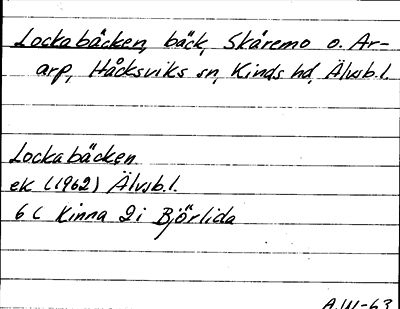 Lockabäcken, bäck, Skåremo o. Ar-
arp, Håcksviks sn, Kinds hd, Älvsb. l.
Lockabäcken
ek (1962) Älvsb. l.
6 C Kinna 2 i Björlida